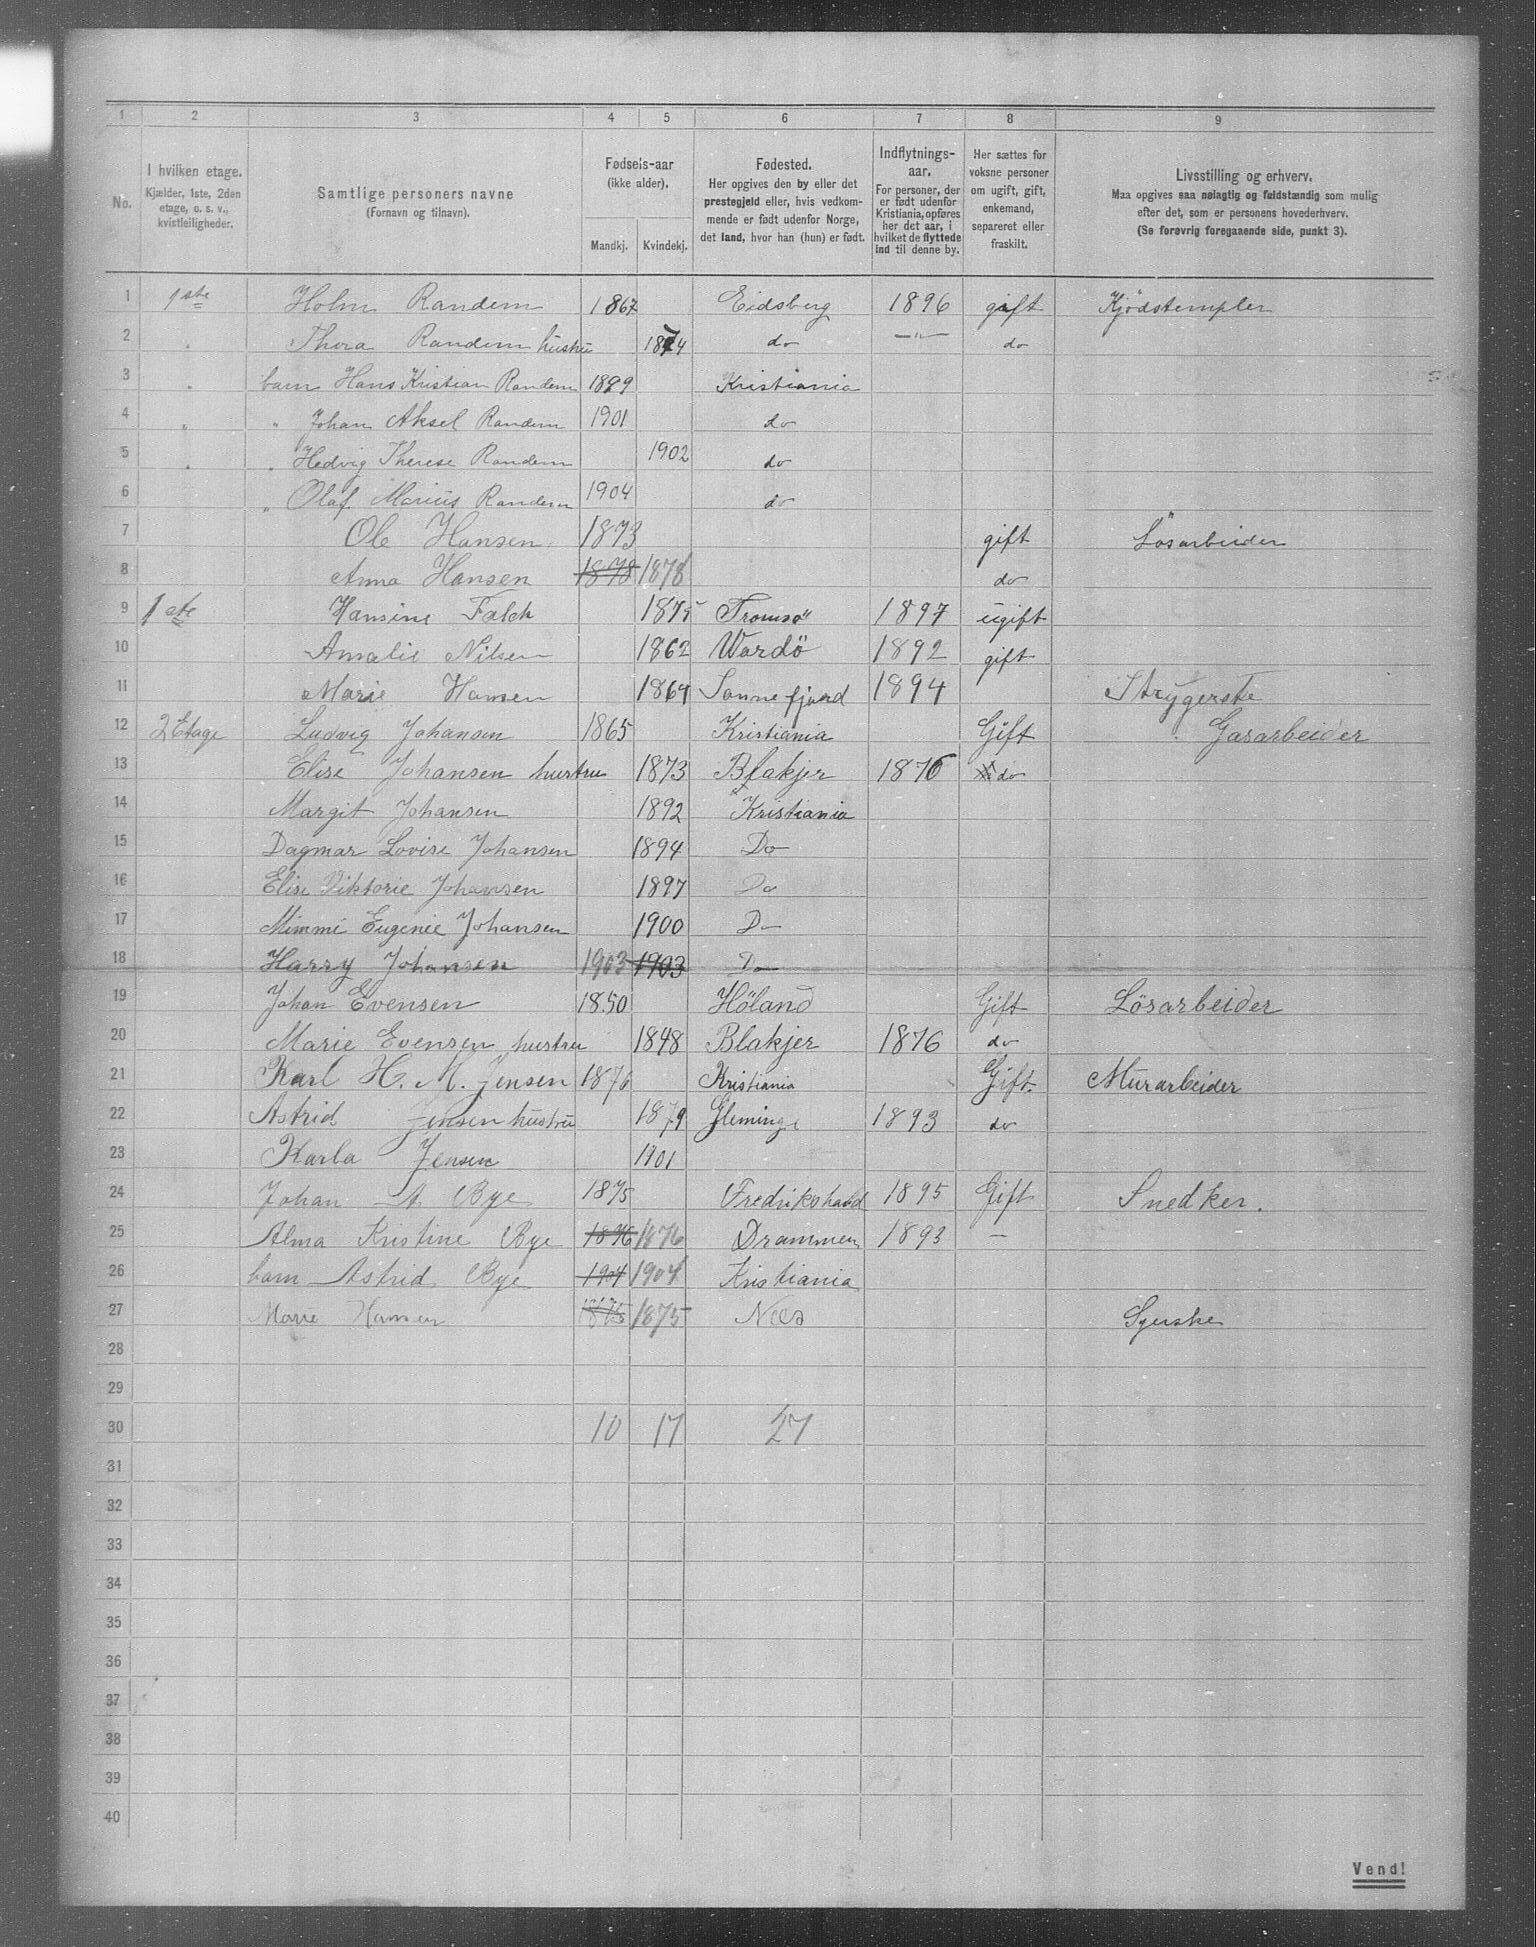 1 2 3 4 5 6 7 8 9
No. I hvilken etage. Kjælder, 1ste, 2den etage, o. s. v., kvistleiligheder. Samtlige personers navne (Fornavn og tilnavn). Fødsels-aar (ikke alder). Mandkj. Kvindekj. Fødested. Her opgives den by eller det prestegjeld eller, hvis vedkommende er født udenfor Norge, det land, hvor han (hun) er født. Indflytnings-aar. For personer, der er født udenfor Kristiania, opføres her det aar, i hvilket de flyttede ind til denne by. Her sættes for voksne personer om ugift, gift, enkemand, separeret eller fraskilt. Livsstilling og erhverv. Maa opgives saa nøiagtig og fuldstændig som mulig efter det, som er personens hovederhverv. (Se forøvrig foregaaende side, punkt 3).
1 1ste Holm Randem 1867 Eidsberg 1896 gift Kjødstempler
2 " Thora Randem hustru 1874 do —"— do
3 " barn Hans Kristian Randem 1899 Kristiania
4 " " Johan Aksel Randem 1901 do
5 " " Hedvig Therese Randem 1902 do
6 " Olaf Marius Randem 1904 do
7 Ole Hansen 1873 gift Løsarbeider
8 Anna Hansen 1878 1878 do
9 1ste Hansine Falch 1875 Tromsø 1897 ugift
10 Amalie Nilsen 1862 Wardö 1892 gift
11 Marie Hansen 1864 Sannefjord 1894 Strygerske
12 2 Etage Ludvig Johansen 1865 Kristiania Gift Gasarbeider
13 Elise Johansen hustru 1873 Blakjer 1876 do
14 Margit Johansen 1892 Kristiania
15 Dagmar Lovise Johansen 1894 Do
16 Elise Viktorie Johansen 1897 Do
17 Mimmi Eugenie Johansen 1900 Do
18 Harry Johansen 1903 1903 Do
19 Johan Evensen 1850 Höland Gift Lösarbeider
20 Marie Evensen hustru 1848 Blakjer 1876 do
21 Karl H. M. Jensen 1876 Kristiania Gift. Murarbeider
22 Astrid Jensen hustru 1879 Gleminge 1893 do
23 Karla Jensen 1901
24 Johan A Bye 1875 Fredrikshald 1895 Gift Snedker.
25 Alma Kristine Bye 1876 1876 Drammen 1893 —
26 barn Astrid Bye 1904 1904 Kristiania
27 Marie Hansen 1875 1875 Næs Syerske
28
29
30 10 17 27
31
32
33
34
35
36
37
38
39
40
Vend!